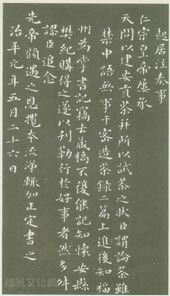 起居注奏事
仁宗皇帝屢承
天問以建安貢茶并所以試茶之狀臣謂論茶雖
禁中語無事于密造茶錄二篇上進後知福
州為掌書記竊去藏稿不復能記知懷安縣
樊紀購得之遂以刊勒行於好事者然多舛
謬臣追念
先帝顧遇之恩攬本流涕輒加正定書之
治平元年五月二十六日